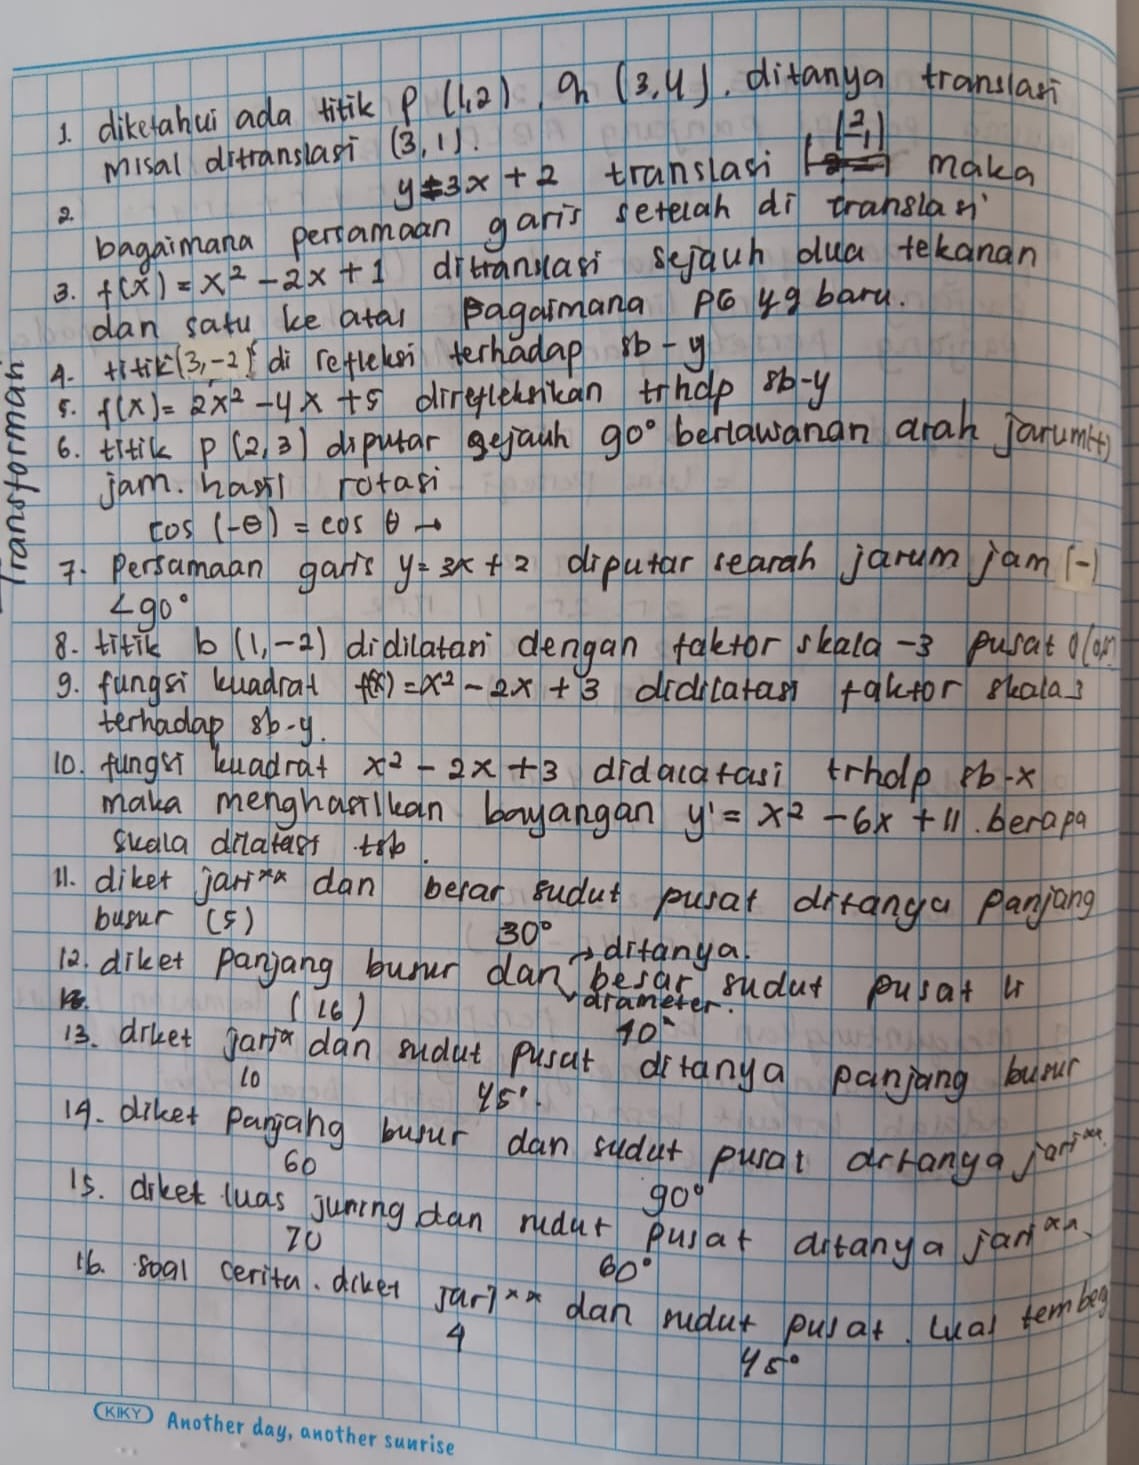 1. diketahui ada titik P (1,2), Q (3,4). ditanya translasi
misal ditranslasi (3,1).
2. y=3x+2 translasi (2 -1) maka
bagaimana persamaan garis setelah di translasi
3. f(x) = x² - 2x + 1 ditranslasi sejauh dua tekanan
dan satu ke atas Bagaimana PG yg baru.
4. titik (3,-2) di refleksi terhadap sb-y
5. f(x) = 2x² - 4x + 5 direfleksikan trhdp sb-y
6. titik P (2,3) diputar sejauh 90° berlawanan arah jarum (+)
jam. hasil rotasi
cos (-θ) = cos θ →
7. Persamaan garis y = 3x + 2 diputar searah jarum jam (-)
<90°
8. titik b (1,-2) didilatasi dengan faktor skala -3 pusat
9. fungsi kuadrat f(x) = x² - 2x + 3 didilatasi faktor skala 3
terhadap sb-y.
10. fungsi kuadrat x² - 2x + 3 didacatasi trhdp sb-x
maka menghasilkan bayangan y' = x² - 6x + 11. berapa
skala dilatasi tsb.
11. diket jari** dan besar sudut pusat ditanya panjang
busur (5) 30°
→ ditanya.
12. diket panjang busur dan besar sudut pusat
(16) diameter. 40°
13. diket jari* dan sudut pusat ditanya panjang busur
10 45°.
14. diket panjang busur dan sudut pusat ditanya jari**.
60 90°
15. diket luas juring dan sudut pusat ditanya jari**.
70 60°
16. soal cerita. diket jari** dan sudut pusat. luas tembeg
4 45°
Transformasi
KIKY Another day, another sunrise